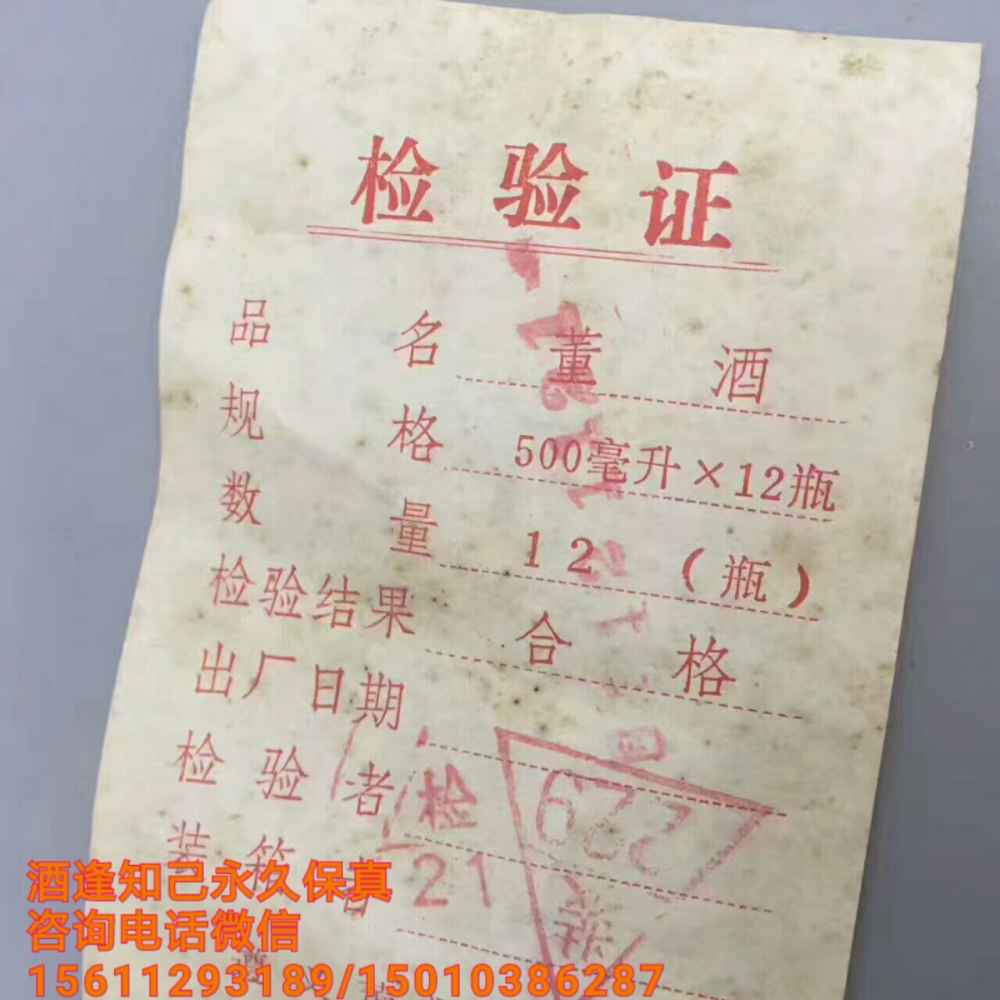 检验证
品名 董酒
规格 500毫升×12瓶
数量 12 (瓶)
检验结果 合格
出厂日期
检验者 检
装箱者 21
酒逢知己永久保真
咨询电话微信
15611293189/15010386287